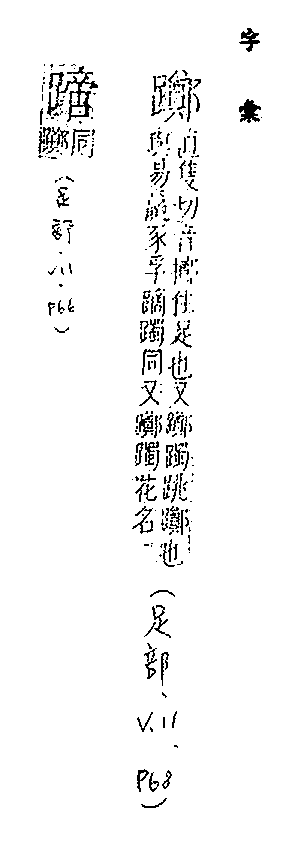 字彙
躑 直隻切音擲住足也又躑躅跳躑也
與易羸豕孚蹢躅同又躑躅花名
(足部、V.11、P68)
蹢 同
躑
(足部、V.11、P66)